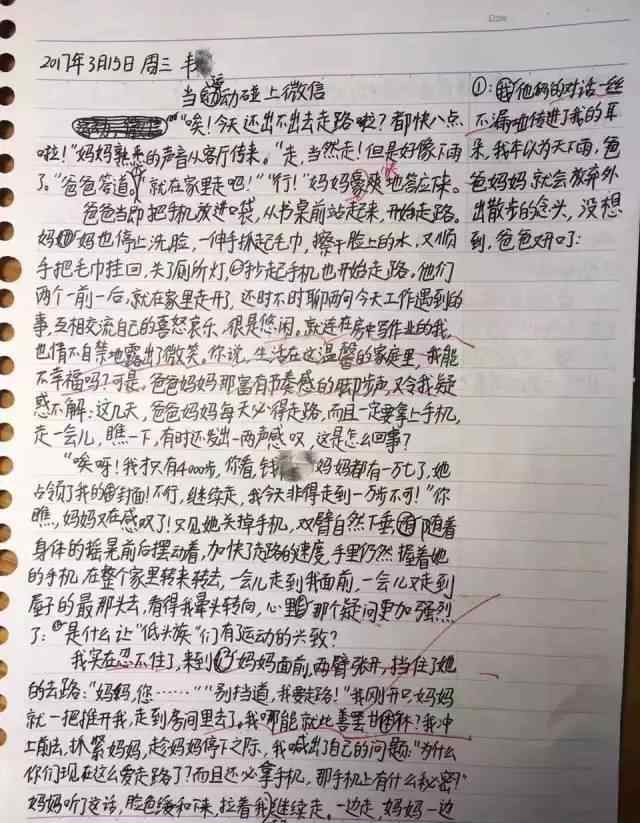 Date
2017年3月15日 周三 韦
当运动碰上微信
"唉!今天还出不出去走路啦?都快八点
啦!"妈妈熟悉的声音从客厅传来。"走,当然走!但是好像下雨
了。"爸爸答道,就在家里走吧!""行!"妈妈豪爽地答应下来。
爸爸当即把手机放进口袋,从书桌前站起来,开始走路。
妈妈也停止洗脸,一伸手抓起毛巾,擦干脸上的水,又顺
手把毛巾挂回,关了厕所灯,抄起手机也开始走路。他们
两个一前一后,就在家里走开了,还时不时聊两句今天工作遇到的
事,互相交流自己的喜怒哀乐,很是悠闲。就连在房中写作业的我,
也情不自禁地露出了微笑。你说,生活在这温馨的家庭里,我能
不幸福吗?可是,爸爸妈妈那富有节奏感的脚步声,又令我疑
惑不解:这几天,爸爸妈妈每天必得走路,而且一定要拿上手机,
走一会儿,瞧一下,有时还发出一两声感叹,这是怎么回事?
"唉呀!我才只有4000步,你看,钱 妈妈都有一万七了,她
占领了我的封面!不行,继续走,我今天非得走到一万步不可!"你
瞧,妈妈又在感叹了!又见她关掉手机,双臂自然下垂,随着
身体的摇晃前后摆动着,加快了走路的速度,手里仍然握着她
的手机,在整个家里转来转去,一会儿走到我面前,一会儿又走到
屋子的最那头去,看得我晕头转向,心里那个疑问更加强烈
了:是什么让"低头族"们有了运动的兴致?
我实在忍不住了,来到妈妈面前,两臂张开,挡住了她
的去路:"妈妈,您……""别挡道,我要走路!"我刚开口,妈妈
就一把推开我,走到房间里去了。我哪能就此善罢甘休?我冲
上前去,抓紧妈妈,趁妈妈停下之际,我喊出了自己的问题:"为什么
你们现在这么爱走路了?而且还必拿手机,那手机上有什么秘密?"
妈妈听了这话,脸色缓和下来,拉着我继续走。一边走,妈妈一边
①:我他俩的对话一丝
不漏地传进了我的耳
朵,我本以为天下雨,爸
爸妈妈就会放弃外
出散步的念头,没想
到,爸爸又开口了: